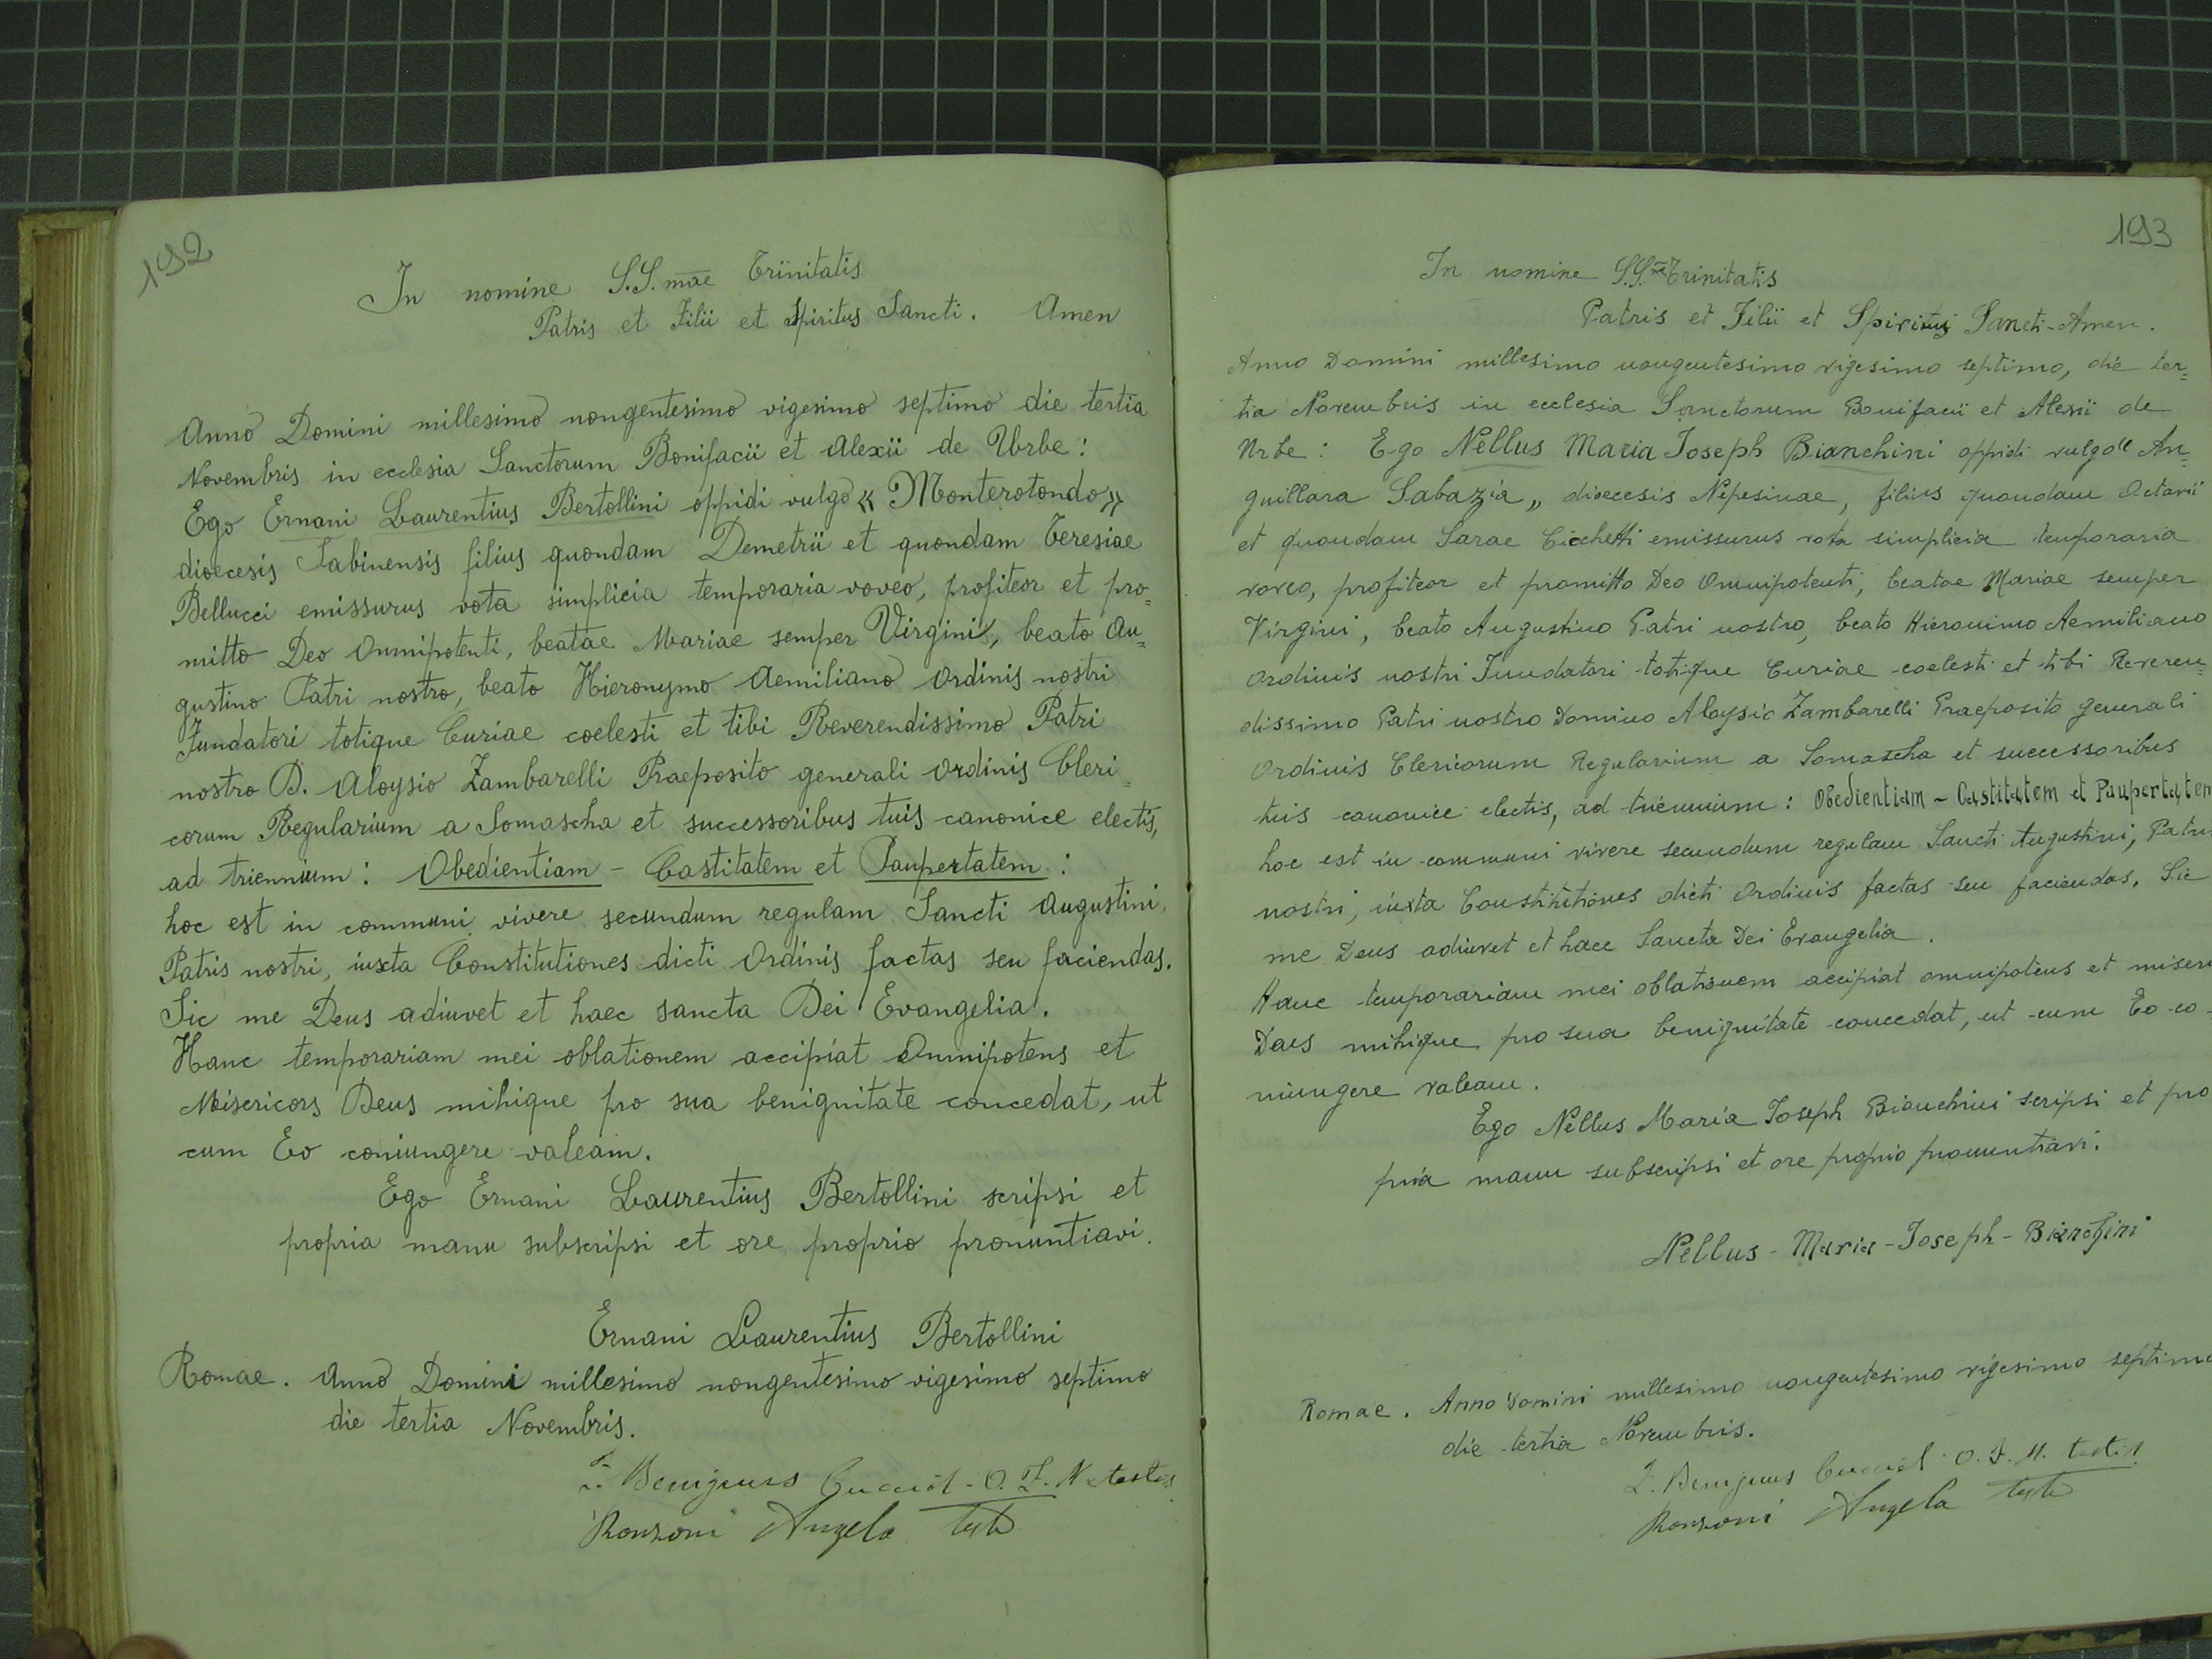 192
In nomine S.S.mae Trinitatis
Patris et Filii et Spiritus Sancti. Amen
Anno Domini millesimo nongentesimo vigesimo septimo die tertia
Novembris in ecclesia Sanctorum Bonifacii et Alexii de Urbe:
Ego Ernani Laurentius Bertollini oppidi vulgo « Monterotondo »
dioecesis Sabinensis filius quondam Demetrii et quondam Teresiae
Bellucci emissurus vota simplicia temporaria voveo, profiteor et pro=
mitto Deo Omnipotenti, beatae Mariae semper Virgini, beato Au=
gustino Patri nostro, beato Hieronymo Aemiliano Ordinis nostri
Fundatori totique Curiae coelesti et tibi Reverendissimo Patri
nostro D. Aloysio Zambarelli Praeposito generali Ordinis Cleri=
corum Regularium a Somascha et successoribus tuis canonice electis,
ad triennium: Obedientiam - Castitatem et Paupertatem:
hoc est in communi vivere secundum regulam Sancti Augustini,
Patris nostri, iuxta Constitutiones dicti Ordinis factas seu faciendas.
Sic me Deus adiuvet et haec sancta Dei Evangelia.
Hanc temporariam mei oblationem accipiat Omnipotens et
Misericors Deus mihique pro sua benignitate concedat, ut
cum Eo coniungere valeam.
Ego Ernani Laurentius Bertollini scripsi et
propria manu subscripsi et ore proprio pronuntiavi.
Ernani Laurentius Bertollini
Romae. Anno Domini millesimo nongentesimo vigesimo septimo
die tertia Novembris.
Benignus O.F.M. testis
Ronzoni Angelo
193
In nomine S.S.mae Trinitatis
Patris et Filii et Spiritus Sancti - Amen.
Anno Domini millesimo nongentesimo vigesimo septimo, die ter=
tia Novembris in ecclesia Sanctorum Bonifacii et Alexii de
Urbe: Ego Nellus Maria Joseph Bianchini oppidi vulgo " An=
guillara Sabazia „ dioecesis Nepesinae, filius quondam Octavii
et quondam Sarae Cicchetti emissurus vota simplicia temporaria
voveo, profiteor et promitto Deo Omnipotenti, beatae Mariae semper
Virgini, beato Augustino Patri nostro, beato Hieronimo Aemiliano
Ordinis nostri Fundatori totique Curiae coelesti et tibi Reveren=
dissimo Patri nostro Domino Aloysio Zambarelli Praeposito generali
Ordinis Clericorum Regularium a Somascha et successoribus
tuis canonice electis, ad triennium: Obedientiam - Castitatem et Paupertatem
hoc est in communi vivere secundum regulam Sancti Augustini, Patris
nostri, iuxta Constitutiones dicti Ordinis factas seu faciendas. Sic
me Deus adiuvet et haec Sancta Dei Evangelia.
Hanc temporariam mei oblationem accipiat omnipotens et miseri
Deus mihique pro sua benignitate concedat, ut cum Eo co-
niungere valeam.
Ego Nellus Maria Joseph Bianchini scripsi et pro
pria manu subscripsi et ore proprio pronuntiavi.
Nellus - Maria - Joseph - Bianchini
Romae. Anno Domini millesimo nongentesimo vigesimo septimo
die tertia Novembris.
Benignus O.F.M. testis
Ronzoni Angelo